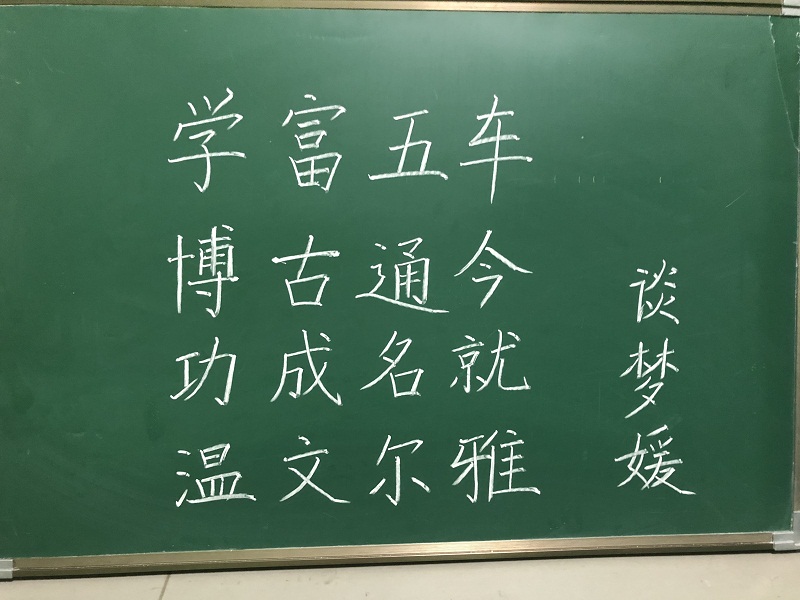 学富五车
博古通今
功成名就
温文尔雅
谈梦媛